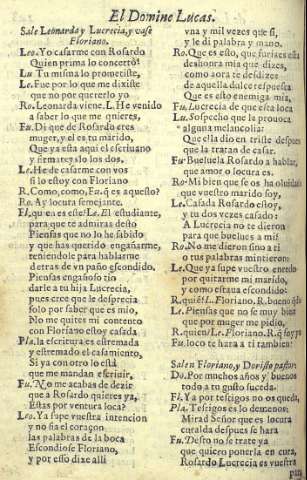 El Domine Lucas.
Sale Leonarda y Lucrecia, y vase
Floriano.
Leo. Yo casarme con Rosardo
Quien prima lo concertò?
Lu Tu misma lo prometiste,
Le. Fue por lo que me dixiste
que no por quererlo yo
Ro. Leonarda viene. L. He venido
a saber lo que me quieres,
Fu. Di que de Rosardo eres
muger, y el es tu marido,
Que ya esta aqui el escriuano
y firmareyslo los dos,
Le. He de casarme con vos
si lo estoy con Floriano
R. Como, como, Fu. q es aquesto?
Ro. Ay locura semejante.
Fl. quien es este? Le. El estudiante,
para que te admiras desto
Piensas que no lo he sabido
y que has querido engañarme,
teniendole para hablarme
detras de vn paño escondido.
Piensas engañoso
darle a tu hija Lucrecia,
pues cree que le desprecia
solo por saber que es mio,
No me quites mi contento
con Floriano estoy casada
Pla. la escritura es estremada
y estremado el casamiento,
Si ya con otro lo està
que me mandan escriuir,
Fu. No me acabas de dezir
que a Rosardo quieres ya,
Estas por ventura loca?
Leo. Ya supe vuestra intencion
y no sia el coraçon
las palabras de la boca
Escondiose Floriano,
y por esso dize alli
vna y mil vezes que si,
y le di palabra y mano.
Ro. Que es esto, que furia es ella
deshonra mia que dizes,
como aora te desdizes
de aquella dulce respuesta
Que es esto enemiga mia,
Fu. Lucrecia de que esta loca
Lu. Sospecho que la prouoca
alguna melancolia:
Que ella dio en triste despues
que la tratan de casar.
Fu. Bueluela Rosardo a hablar,
que amor o locura es.
Ro. Mi bien que se os ha oluidado
que vuestro marido soy,
Le. Casada Rosardo estoy,
y tu dos vezes casado:
A Lucrecia no te dieron
para que buelues a mi
Ro. No me dieron sino a ti
o tus palabras mintieron:
Le. Que ya supe vuestro enredo
por quitarme mi marido,
y como estaua escondido:
R. quiẽ? L. Floriano. R. bueno quedo
Le. Piensas que no se muy bien
que por muger me pidio,
R. quien? Le. Floriano. R. si soy yo
Fu. loco te hara a ti tambien:
Salen Floriano, y Doristo pastor:
Do. Por muchos años y buenos
todo a tu gusto suceda.
Fl. Ya por testigos no os queda,
Pla. Testigos es lo demenos:
Mirad Señor que es locura
curalda despues se hara
Fu. Desto no se trate ya
que quiero ponerla en cura,
Rosardo Lucrecia es vuestra